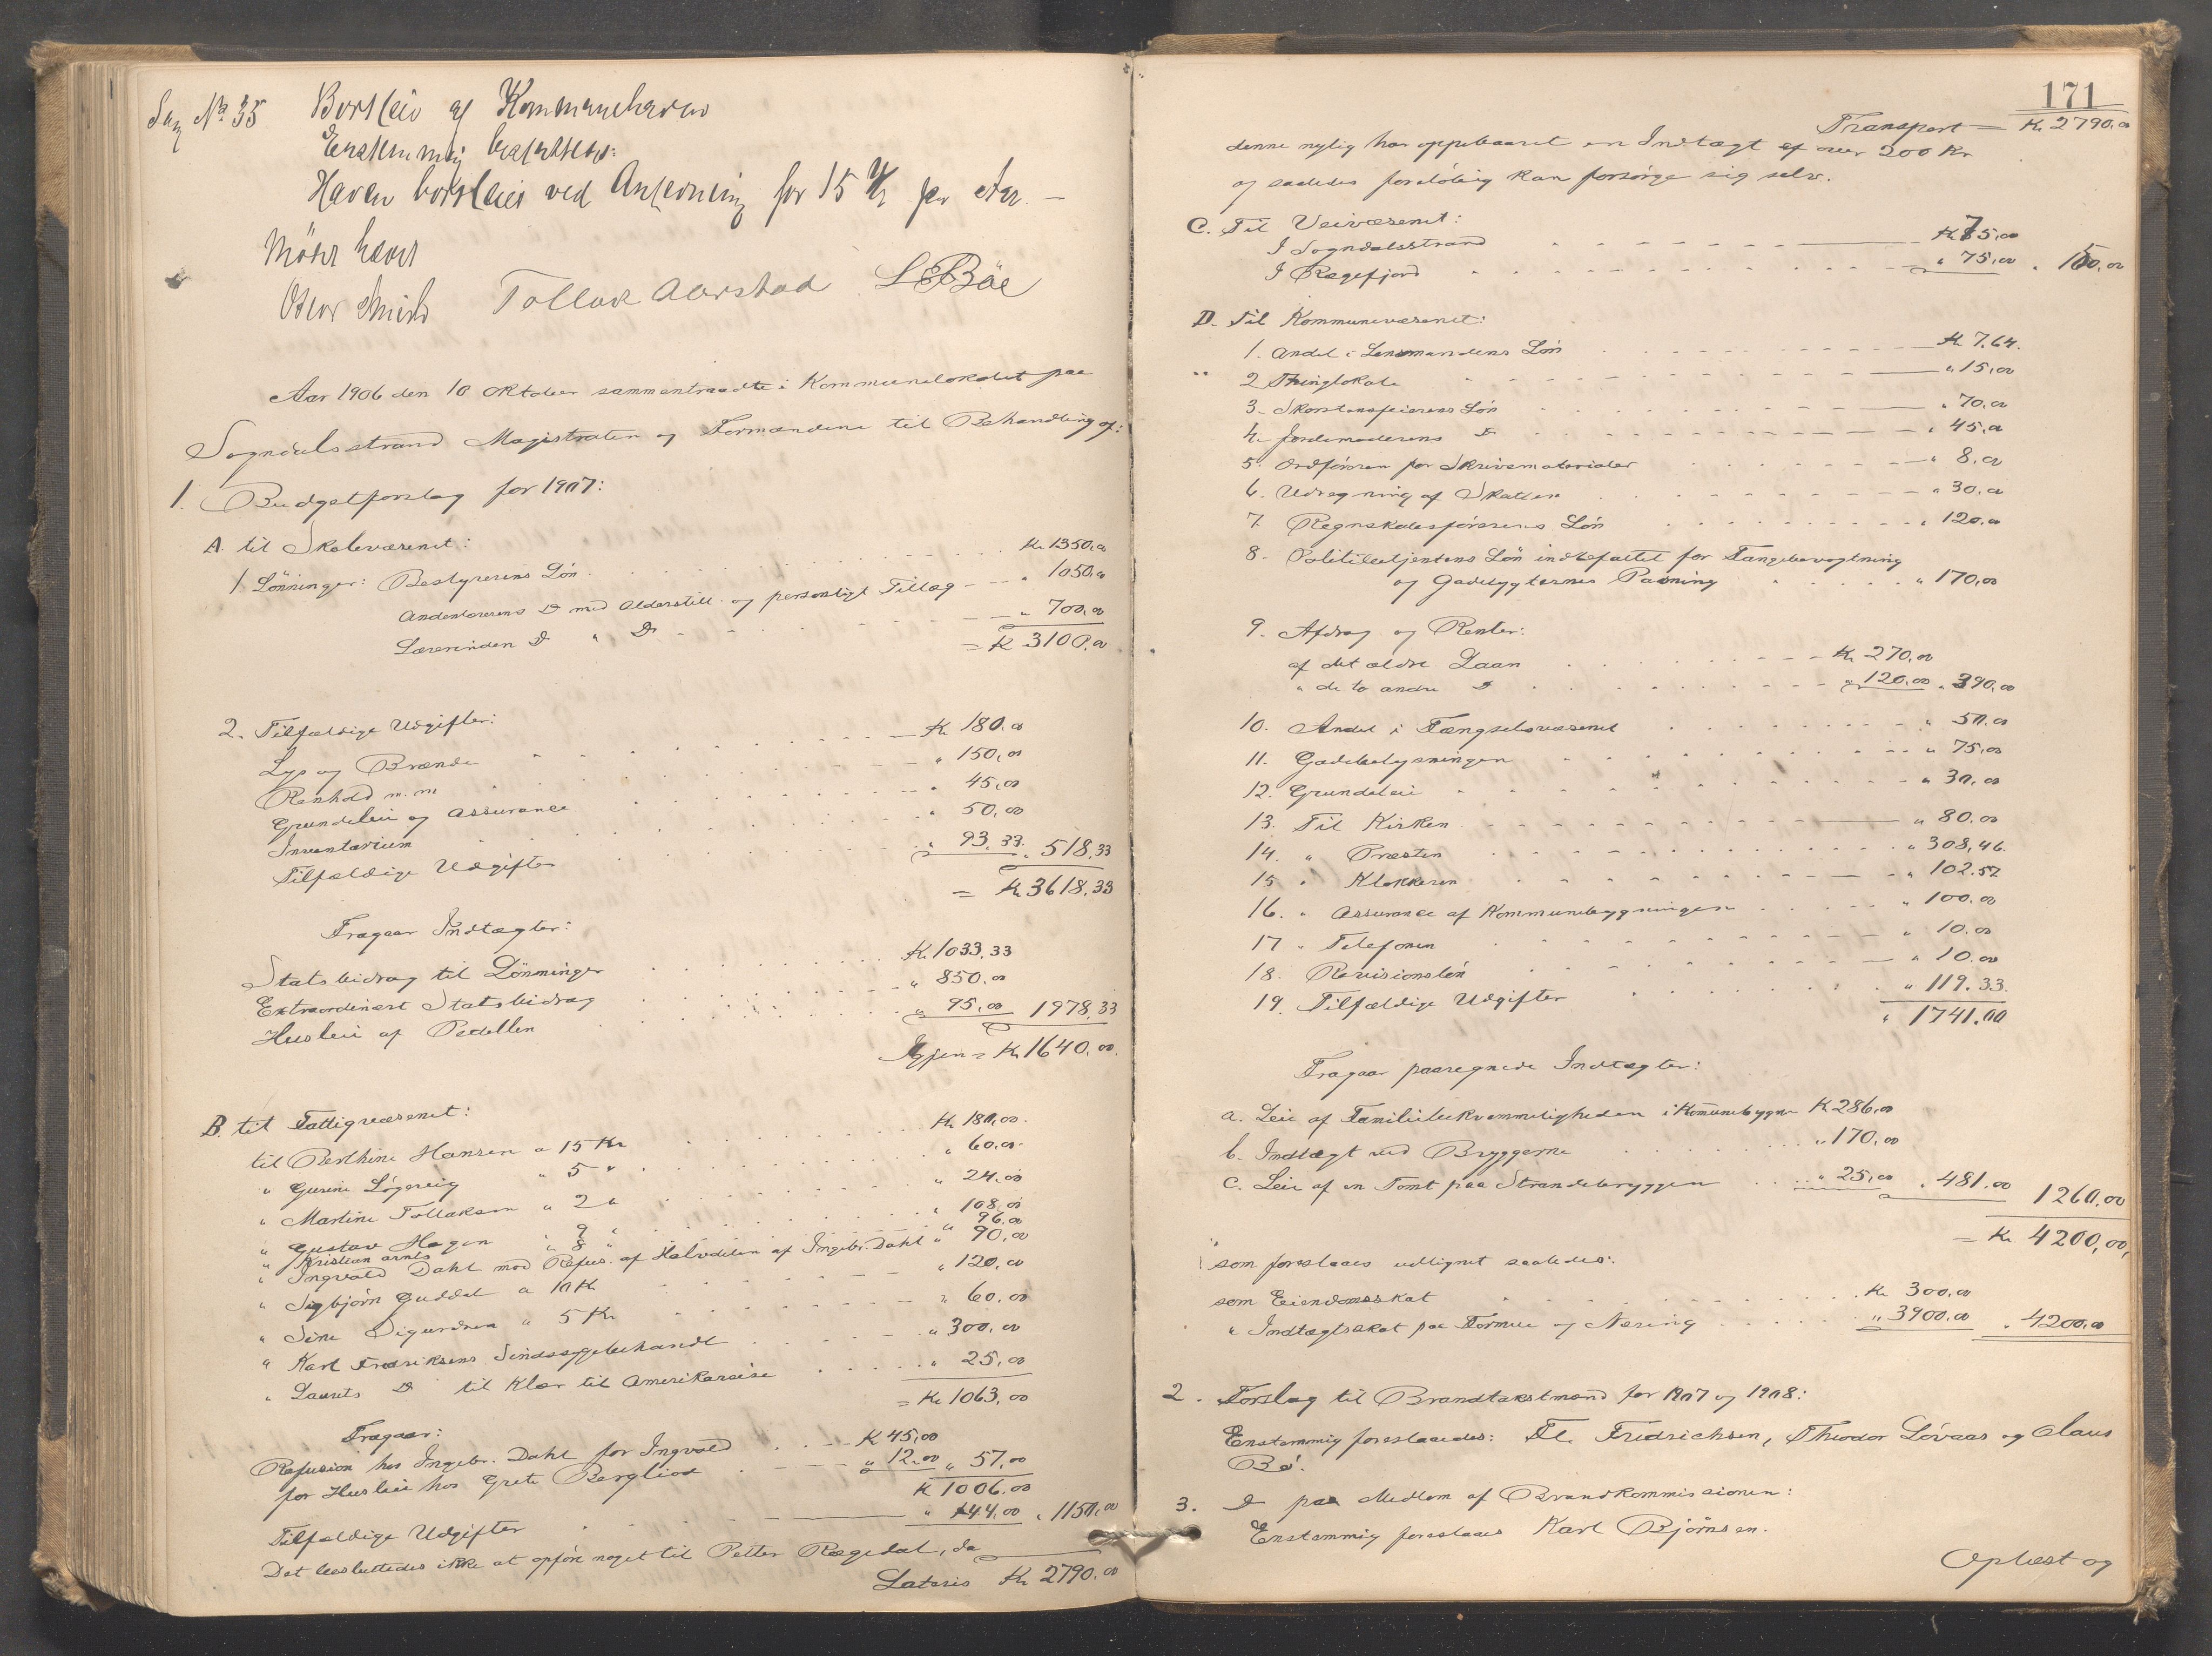 Sag No 35 Bortleie af Kommunehaven
Enstemmig besluttet:
Haven bortleies ved Anfordring for 15 Kr per Aar. —
Oscar Tollak Aarstad L E Böe
Aar 1906 den 10 oktober sammentraadte i Kommunelokalet paa
Sogndalsstrand Magistraten og Formændene til Behandling af:
1. Budgetforslag for 1907:
A. til Skolevæsenet:
1. Lönninger: Bestyrerens Lön Kr 1350,00
Andenlærerens Do med Alderstill. og personligt Tillæg " 1050,00
Lærerinden Do " Do " 700,00
= Kr 3100,00
2. Tilfældige Udgifter:
Lys og Brænde Kr 180,00
Renhold m. m " 150,00
Grundleie og Assurance " 45,00
Inventarium " 50,00
Tilfældige Udgifter " 93,33 " 518,33
= Kr 3618,33
Fragaar Indtægter:
Statsbidrag til Lönninger Kr 1033,33
Extraordinært Statsbidrag " 850,00
Husleie af Pedellen " 95,00 1978,33
Igjen = Kr 1640,00
B. til Fattigvæsenet:
til Berthine Hansen a 15 Kr Kr 180,00
" Gurine Lögereig " 5 " " 60,00
" Martine Tollaksen " 2 " " 24,00
" Gustav Hagen " 9 " " 108,00
" Kristian Arnts " 8 " " 96,00
" Ingvald Dahl mod Refus. af Halvdelen af Ingebr. Dahl " 90,00
" Sigbjörn Guddal a 10 Kr " 120,00
" Sine Sigurdsen " 5 Kr " 60,00
" Karl Fredriksens Sindssygebehandl " 300,00
" Laurits Do til Klær til Amerikareise " 25,00
= Kr 1063,00
Fragaar:
Refusion hos Ingebr. Dahl for Ingvald K 45,00
for Husleie hos Grete Bergliod " 12,00 " 57,00
K 1006,00
Tilfældige Udgifter " 144,00 " 1150,00
Det besluttedes ikke at opföre noget til Petter Rægedal, da
Lateris Kr 2790,00
171
Transport = Kr 2790,00
denne nylig har oppebaaret en Indtægt af over 200 Kr
og saaledes foreløbig kan forsörge sig selv.
C. Til Veivæsenet:
I Sogndalsstrand Kr 75,00
I Rægefjord " 75,00 " 150,00
D. Til Kommunevæsenet:
1. Andel i Lensmandens Lön Kr 7,64.
2 Thinglokale " 15,00
3. Skorstensfeierens Lön " 70,00
4. Jordemoderens Do " 45,00
5. Ordföreren for Skrivematerialer " 8,00
6. Udregning af Skatten " 30,00
7. Regnskabsförerens Lön " 120,00
8. Politibetjentens Lön indbefattet for Fangebevogtning
og Gadelygternes Pasning " 170,00
9. Afdrag og Renter:
af det ældre Laan Kr 270,00
" de to andre Do " 120,00 " 390,00
10. Andel i Fængselsvæsenet " 50,00
11. Gadebelysningen " 75,00
12. Grundeleie " 30,00
13. Til Kirken " 80,00
14. " Præsten " 308,46.
15 " Klokkeren " 102.57
16. " Assurance af Kommunebygningen " 100,00
17 " Telefonen " 10.00
18. Revisionslön " 10.00
19. Tilfældige Udgifter " 119.33.
" 1741.00
Fragaar paaregnede Indtægter:
a. Leie af Familiebekvemmeligheden i Komunebygn K 286,00
b. Indtægt ved Bryggerne " 170,00
c. Leie af en Tomt paa Strandebryggen " 25,00 " 481.00 1260,00
= Kr. 4200,00,
som foreslaaes udlignet saaledes:
som Eiendomsskat Kr 300,00
" Indtægtsskat paa Formue og Næring " 3900,00 " 4200,00
2. Forslag til Brandtakstmænd for 1907 og 1908:
Enstemmig foreslaaedes: Fl. Fredrichsen, Theodor Lövaas og Claus
Bö.
3. Do paa Medlem af Brandkommissionen:
Enstemmig foreslaaes Karl Björnsen.
Oplæst og